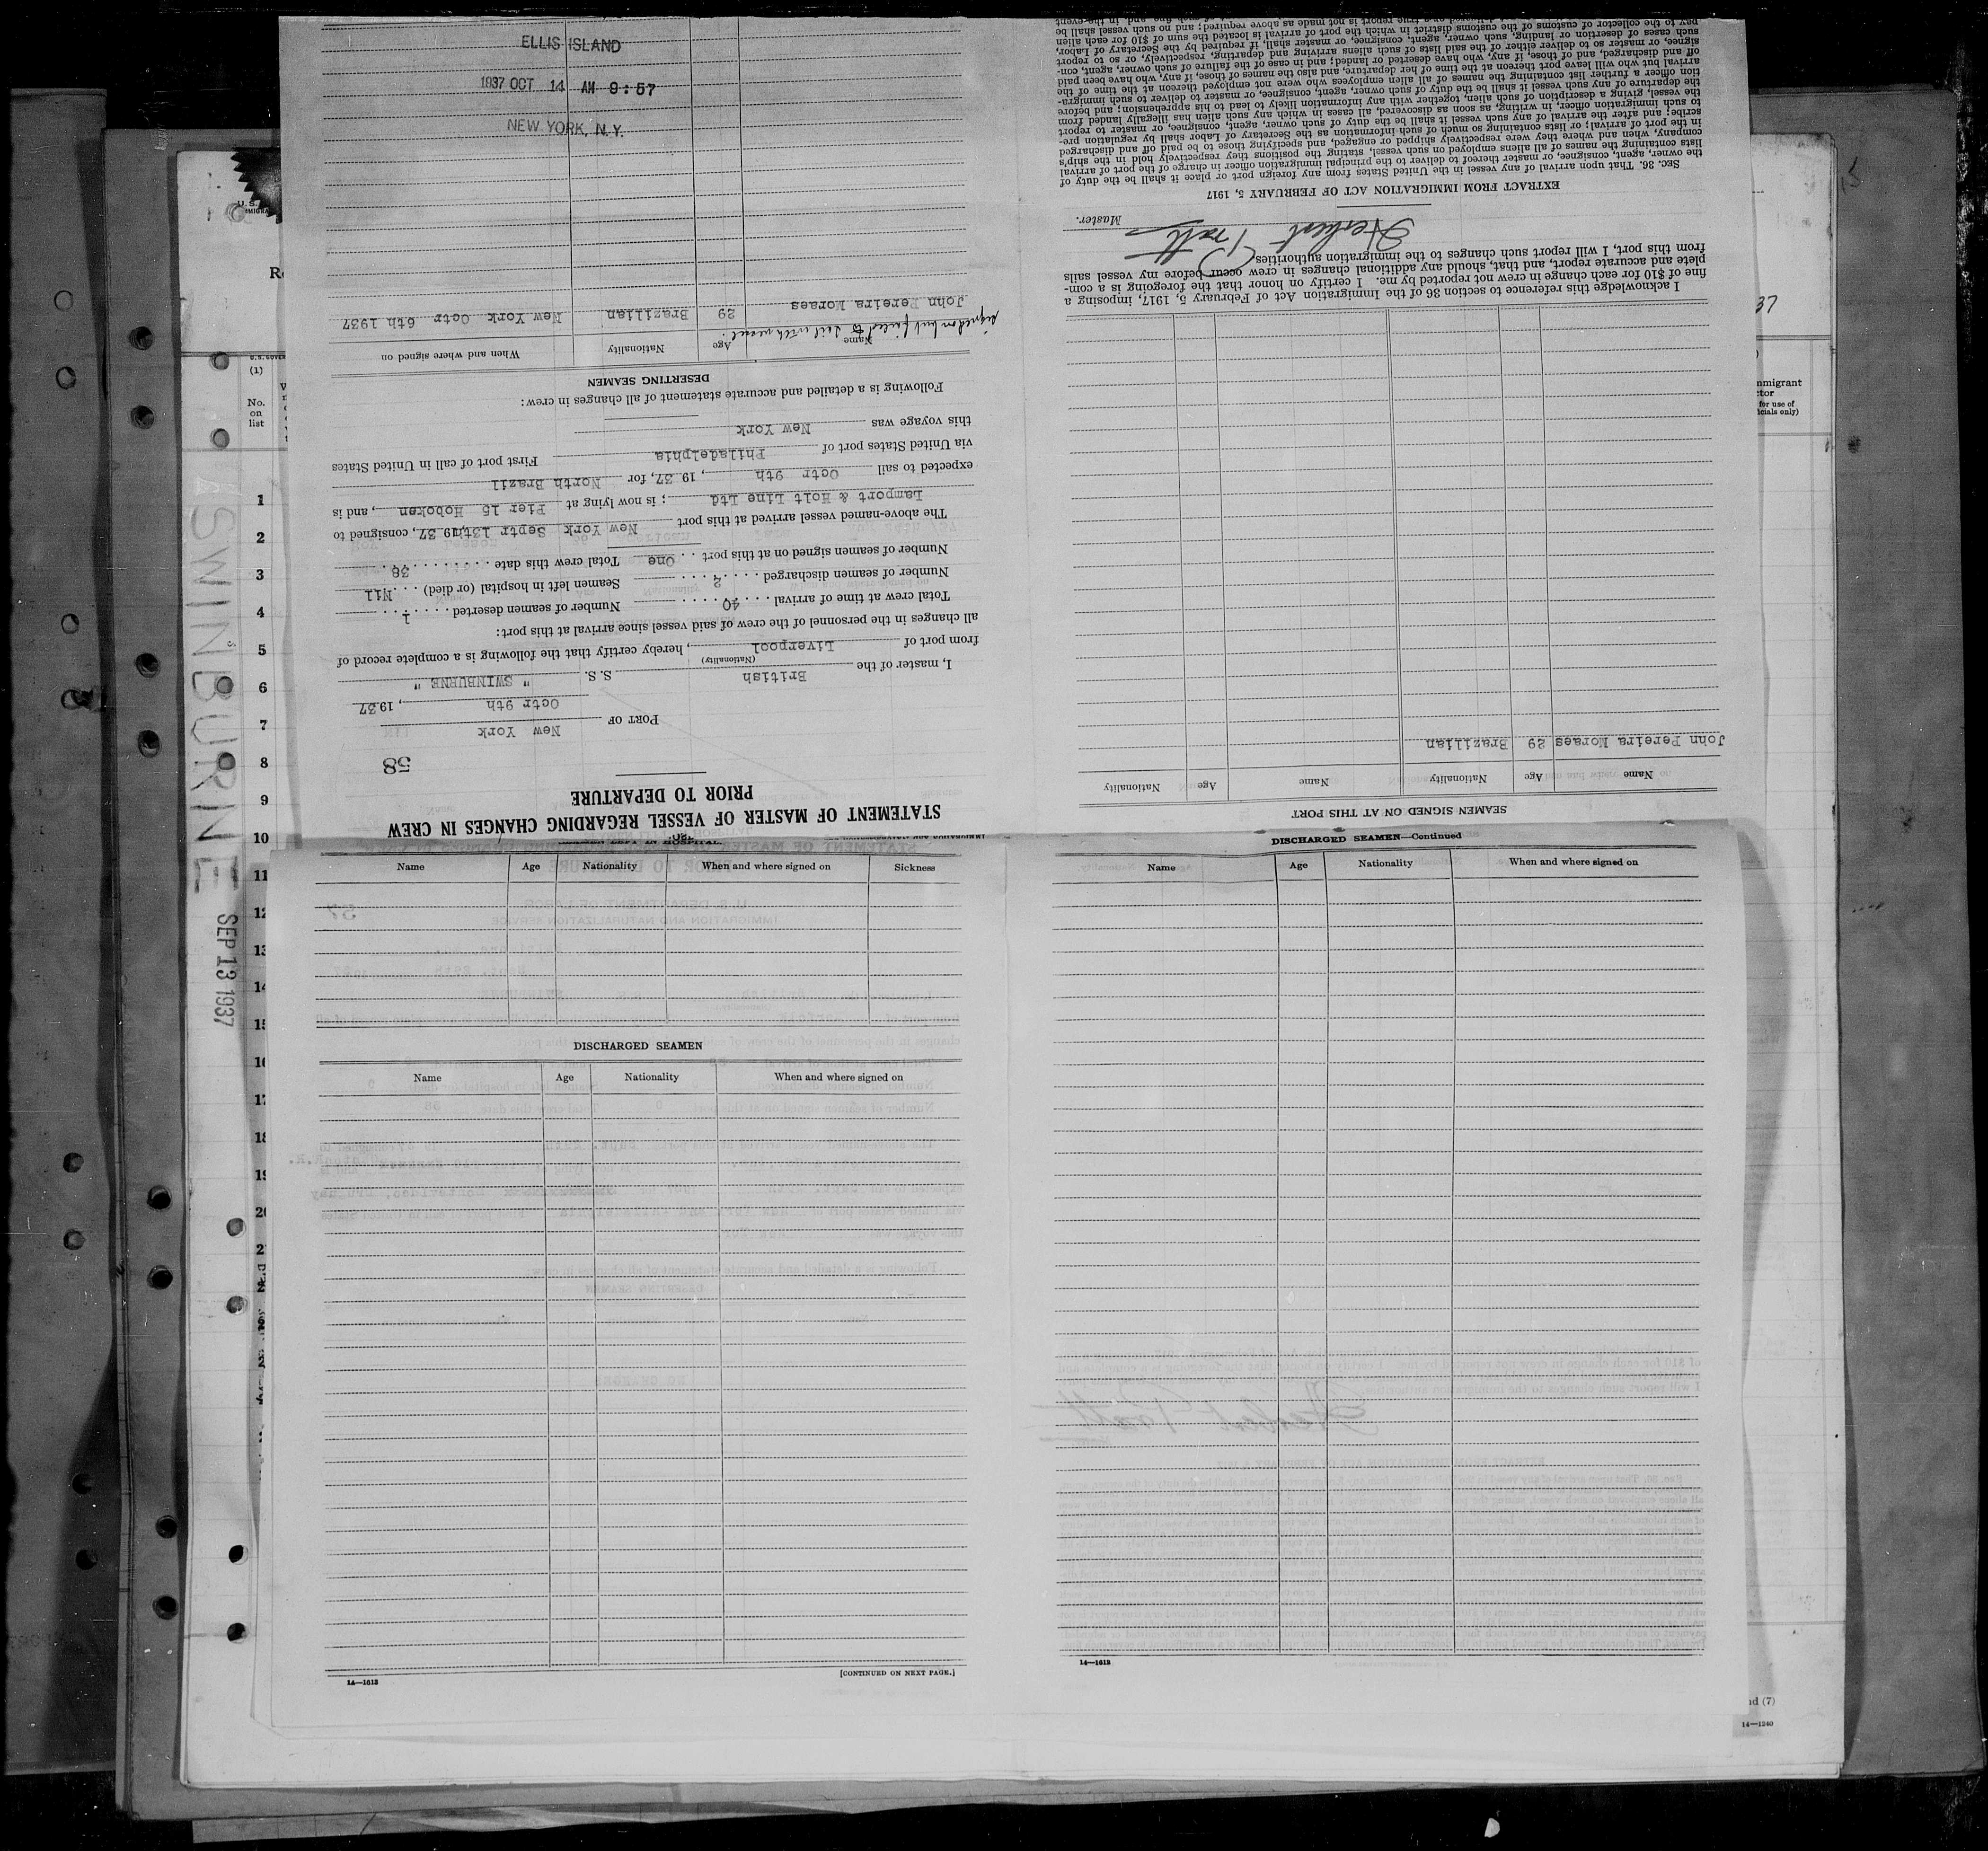 STATEMENT OF MASTER OF VESSEL REGARDING CHANGES IN CREW
PRIOR TO DEPARTURE
58
PORT OF New York
Octr 9th, 1937
I, master of the British S.S. " SWINBURNE "
(Nationality)
from port of Liverpool, hereby certify that the following is a complete record of
all changes in the personnel of the crew of said vessel since arrival at this port:
Total crew at time of arrival 40 Number of seamen deserted 1
Number of seamen discharged 2 Seamen left in hospital (or died) Nil
Number of seamen signed on at this port One Total crew this date 38
The above-named vessel arrived at this port New York Septr 13th, 1937, consigned to
Lamport & Holt Line Ltd; is now lying at Pier 15 Hoboken, and is
expected to sail Octr 9th, 1937, for North Brazil
via United States port of Philadelphia First port of call in United States
this voyage was New York
Following is a detailed and accurate statement of all changes in crew:
DESERTING SEAMEN
Name Age Nationality When and where signed on
signed on but failed to sail with vessel.
John Pereira Moraes 29 Brazilian New York Octr 6th 1937
ELLIS ISLAND
1937 OCT 14 AM 9:57
NEW YORK, N.Y.
SEAMEN SIGNED ON AT THIS PORT
Name Age Nationality Name Age Nationality
John Pereira Moraes 29 Brazilian
I acknowledge this reference to section 36 of the Immigration Act of February 5, 1917, imposing a
fine of $10 for each change in crew not reported by me. I certify on honor that the foregoing is a com-
plete and accurate report, and that, should any additional changes in crew occur before my vessel sails
from this port, I will report such changes to the immigration authorities.
Herbert Pratt
Master.
EXTRACT FROM IMMIGRATION ACT OF FEBRUARY 5, 1917
SEC. 36. That upon arrival of any vessel in the United States from any foreign port or place it shall be the duty of
the owner, agent, consignee, or master thereof to deliver to the principal immigration officer in charge of the port of arrival
lists containing the names of all aliens employed on such vessel, stating the positions they respectively hold in the ship's
company, when and where they were respectively shipped or engaged, and specifying those to be paid off and discharged
in the port of arrival; or lists containing so much of such information as the Secretary of Labor shall by regulation pre-
scribe; and after the arrival of any such vessel it shall be the duty of such owner, agent, consignee, or master to report
to such immigration officer, in writing, as soon as discovered, all cases in which any such alien has illegally landed from
the vessel, giving a description of such alien, together with any information likely to lead to his apprehension; and before
the departure of any such vessel it shall be the duty of such owner, agent, consignee, or master to deliver to such immigra-
tion officer a further list containing the names of all alien employees who were not employed thereon at the time of the
arrival but who will leave port thereon at the time of her departure, and also the names of those, if any, who have been paid
off and discharged, and of those, if any, who have deserted or landed; and in case of the failure of such owner, agent, con-
signee, or master so to deliver either of the said lists of such aliens arriving and departing, respectively, or so to report
such cases of desertion or landing, such owner, agent, consignee, or master shall, if required by the Secretary of Labor,
pay to the collector of customs of the customs district in which the port of arrival is located the sum of $10 for each alien
SEAMEN LEFT IN HOSPITAL.
Name Age Nationality When and where signed on Sickness
DISCHARGED SEAMEN
Name Age Nationality When and where signed on
[CONTINUED ON NEXT PAGE.]
14—1613
DISCHARGED SEAMEN—Continued
Name Age Nationality When and where signed on
14—1613
SWINBURNE
SEP 13 1937
U. S.
(1)
No.
on
list
1
2
3
4
5
6
7
8
9
10
11
12
13
14
15
37
for use of
nd (7)
14—1240